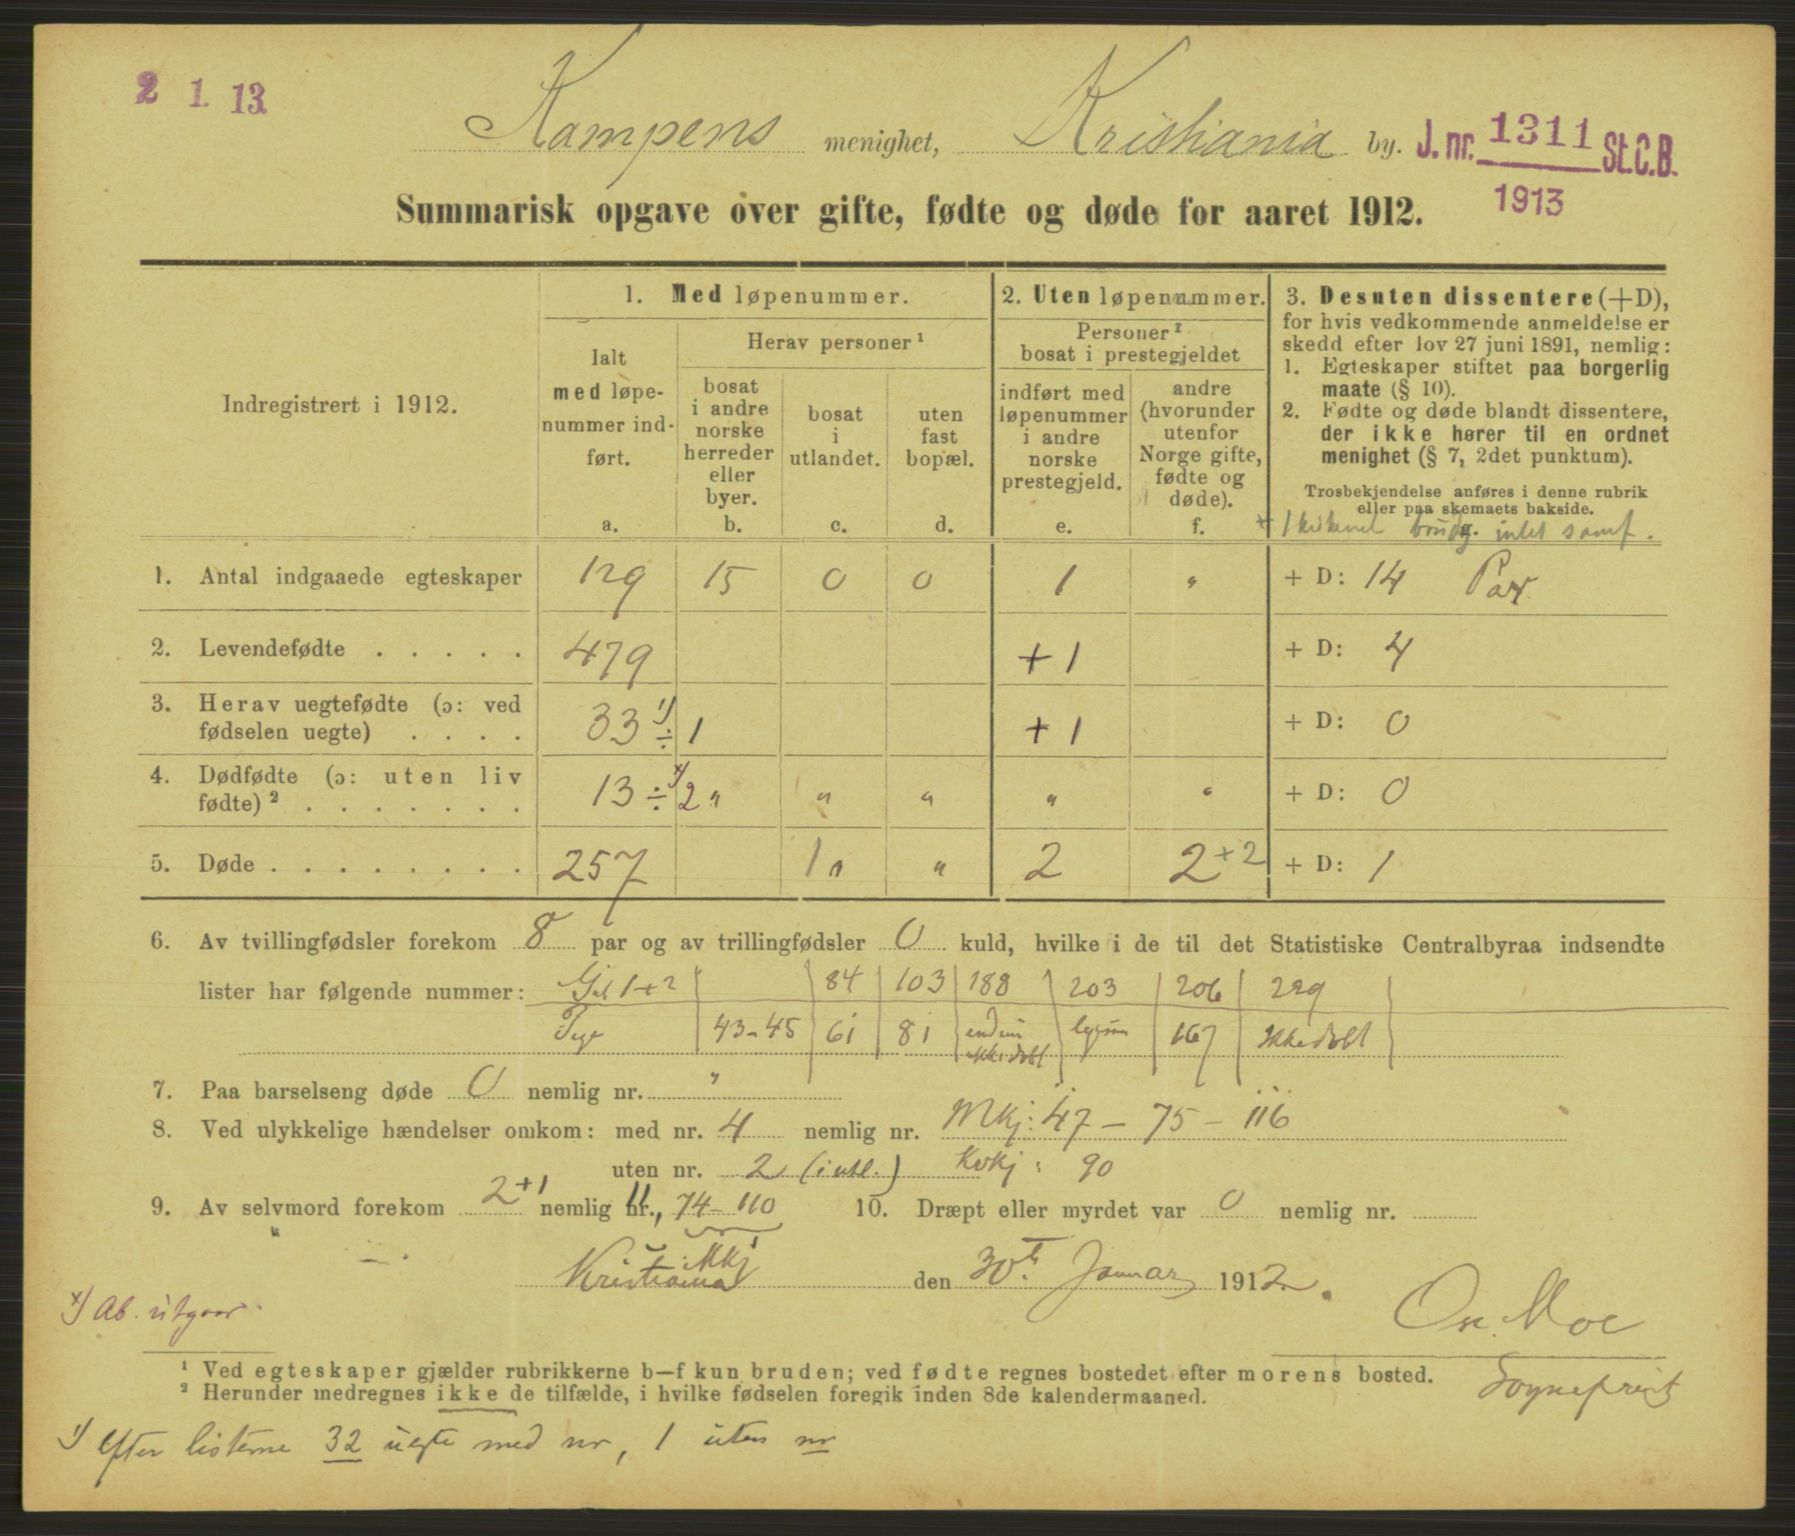 2 1. 13.
Kampens menighet, Kristiania by. J. nr. 1311 St.C.B.
1913
Summarisk opgave over gifte, fødte og døde for aaret 1912.
Indregistrert i 1912.
1. Med løpenummer.
Ialt
med løpe-
nummer ind-
ført.
a.
Herav personer¹
bosat
i andre
norske
herreder
eller
byer.
b.
bosat
i
utlandet.
c.
uten
fast
bopæl.
d.
2. Uten løpenummer.
Personer¹
bosat i prestegjeldet
indført med
løpenummer
i andre
norske
prestegjeld.
e.
andre
(hvorunder
utenfor
Norge gifte,
fødte og
døde).
f.
3. Desuten dissentere (+D),
for hvis vedkommende anmeldelse er
skedd efter lov 27 juni 1891, nemlig:
1. Egteskaper stiftet paa borgerlig
maate (§ 10).
2. Fødte og døde blandt dissentere,
der ikke hører til en ordnet
menighet (§ 7, 2det punktum).
Trosbekjendelse anføres i denne rubrik
eller paa skemaets bakside.
brudg. intet samf.
1. Antal indgaaede egteskaper 129 15 0 0 1 " + D: 14 Par
2. Levendefødte . . . . . 479 + 1 + D: 4
3. Herav uegtefødte (ɔ: ved
fødselen uegte) . . . . 33 ¹) ÷ 1 + 1 + D: 0
4. Dødfødte (ɔ: uten liv
fødte)² . . . . . . . 13 ÷ ˣ) 2 " " " " " + D: 0
5. Døde . . . . . . . . 257 1 " " 2 2 +2 + D: 1
6. Av tvillingfødsler forekom 8 par og av trillingfødsler 0 kuld, hvilke i de til det Statistiske Centralbyraa indsendte
lister har følgende nummer: 1+2 84 103 188 203 206 229
43-45 61 81 167 ikkedøbt
7. Paa barselseng døde 0 nemlig nr. "
8. Ved ulykkelige hændelser omkom: med nr. 4 nemlig nr. Mkj: 47 – 75 – 116
uten nr. 2 (i utl.) Kvkj: 90
9. Av selvmord forekom 2 +1 nemlig nr., 11 74 – 110 10. Dræpt eller myrdet var 0 nemlig nr.
Mkj
Kristiania den 30te Januar 1912.
x) Ab. utgaar.
Osc. Moe
Sogneprest
¹ Ved egteskaper gjælder rubrikkerne b–f kun bruden; ved fødte regnes bostedet efter morens bosted.
² Herunder medregnes ikke de tilfælde, i hvilke fødselen foregik inden 8de kalendermaaned.
1) Efter listerne 32 uegte med nr, 1 uten nr